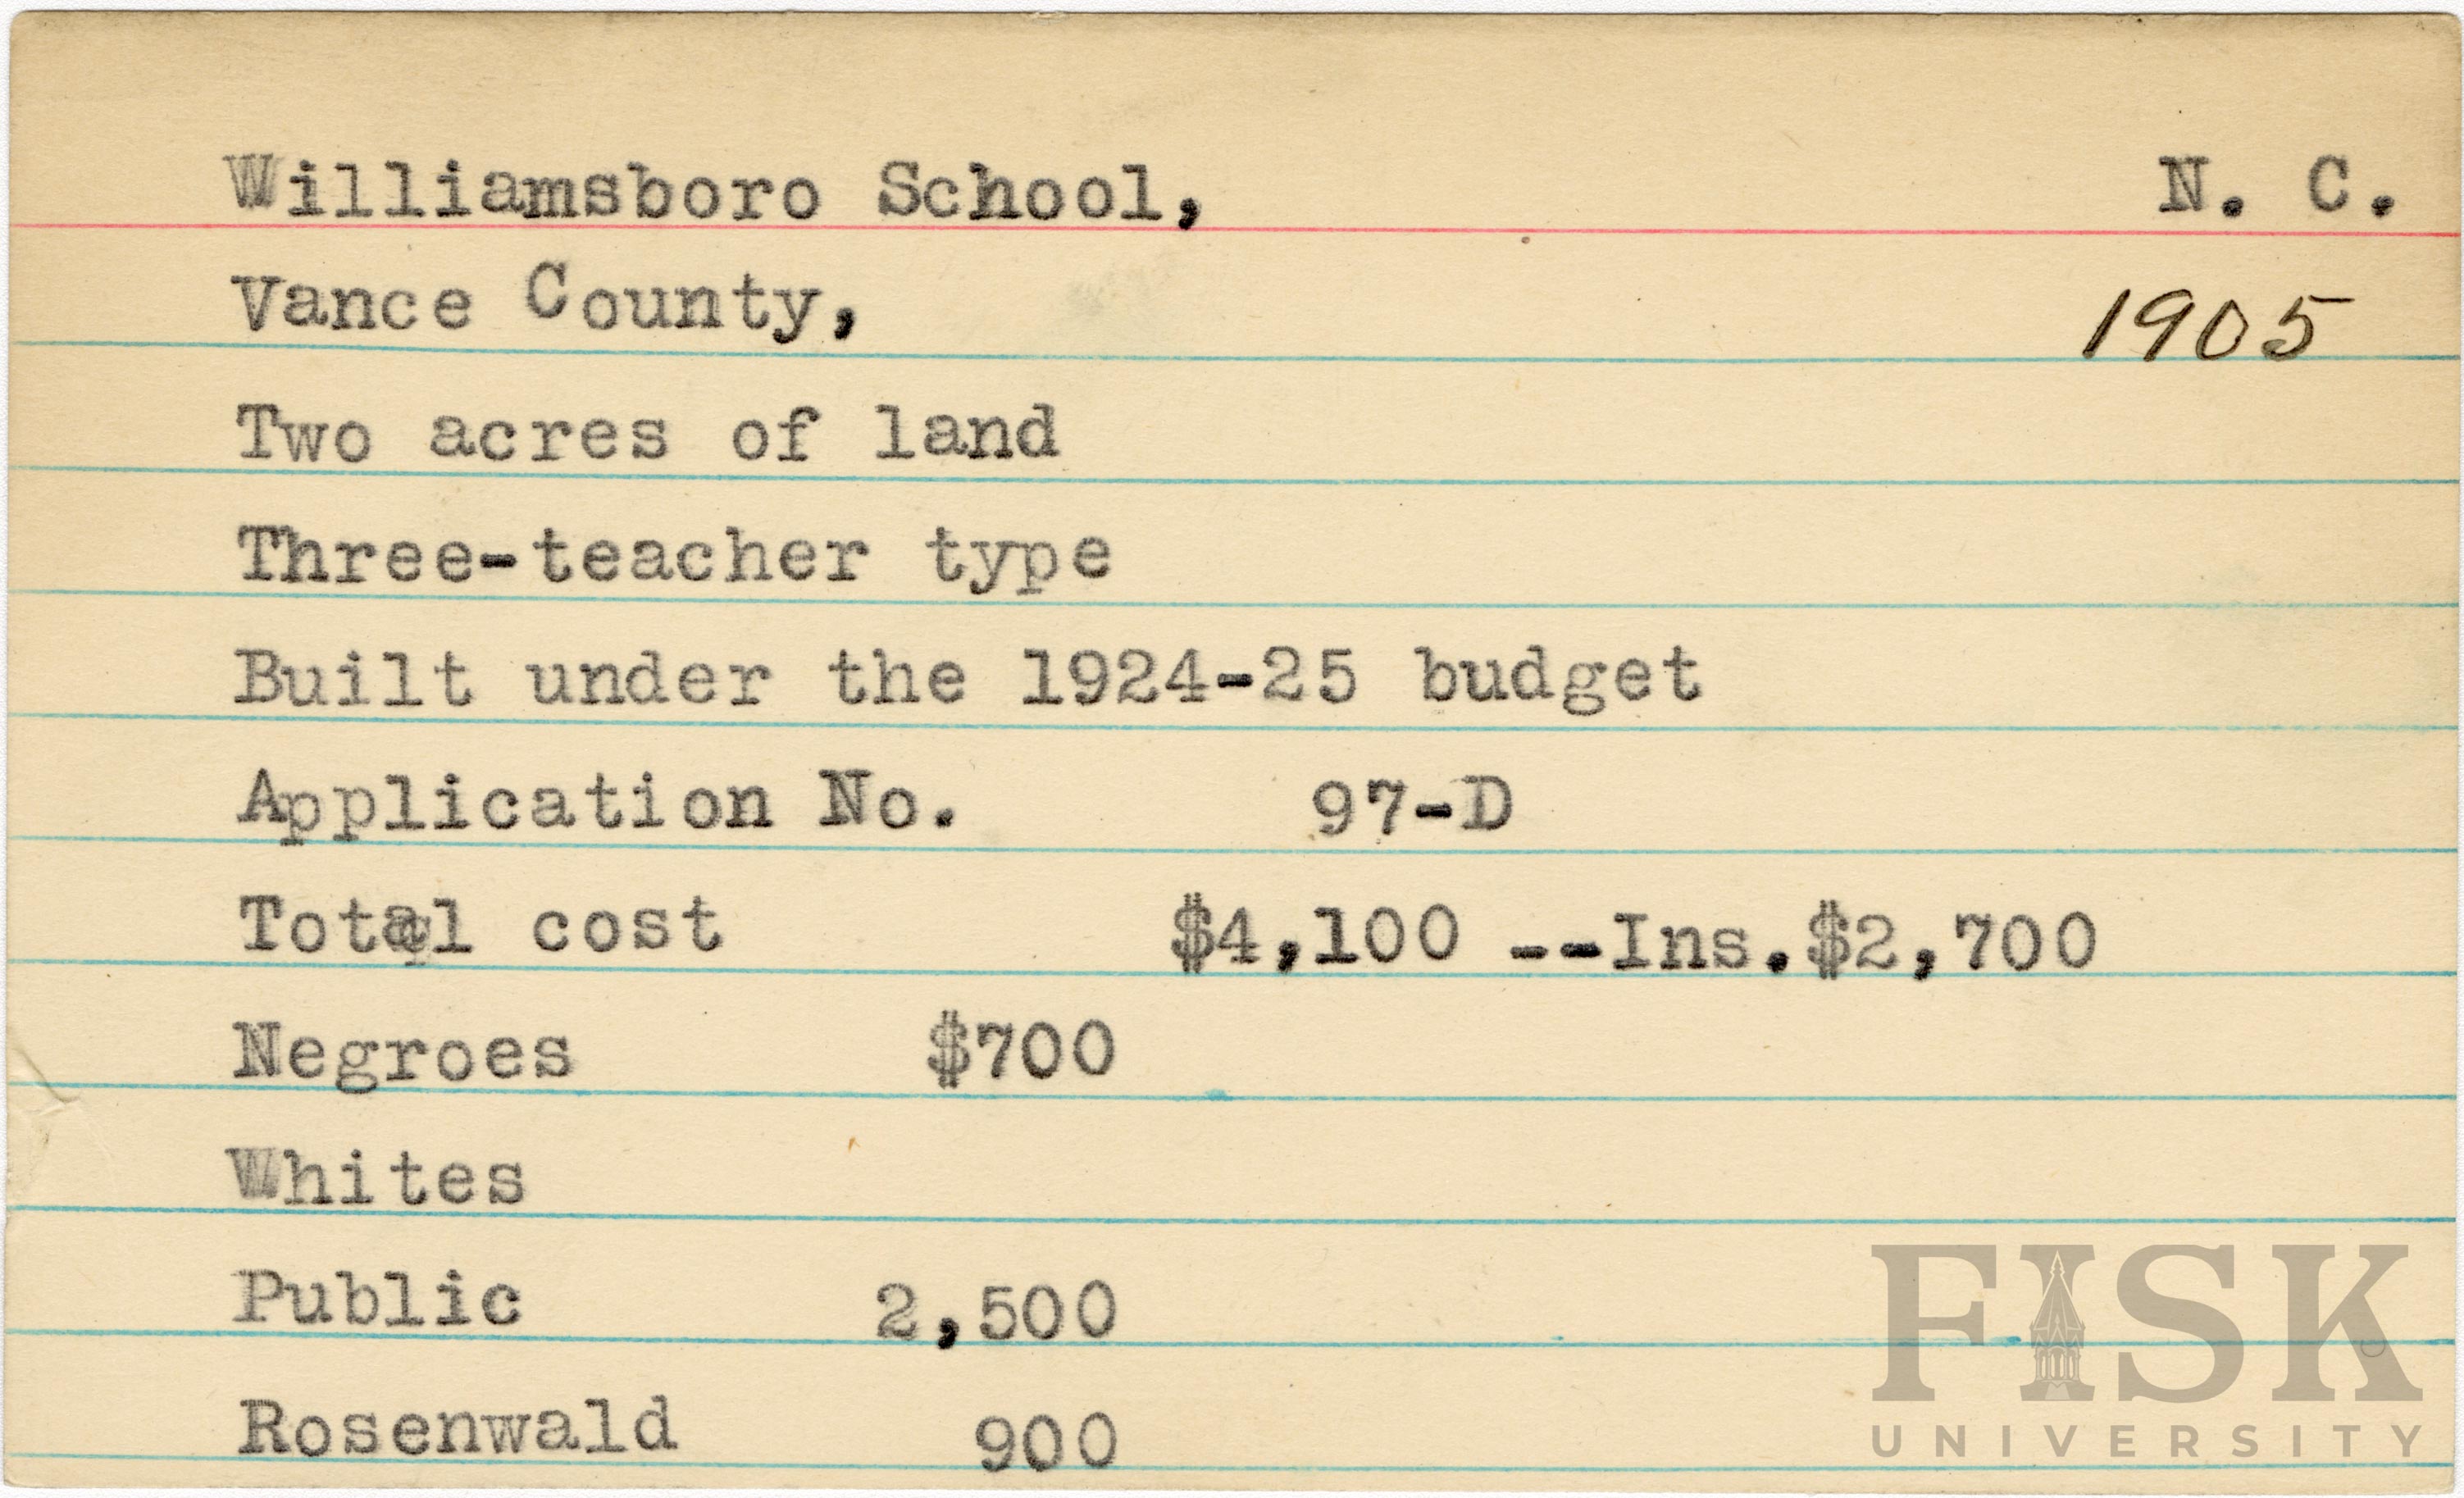 Williamsboro School, N. C.
Vance County, 1905
Two acres of land
Three-teacher type
Built under the 1924-25 budget
Application No. 97-D
Total cost $4,100 --Ins.$2,700
Negroes $700
Whites
Public 2,500
Rosenwald 900
FISK
UNIVERSITY